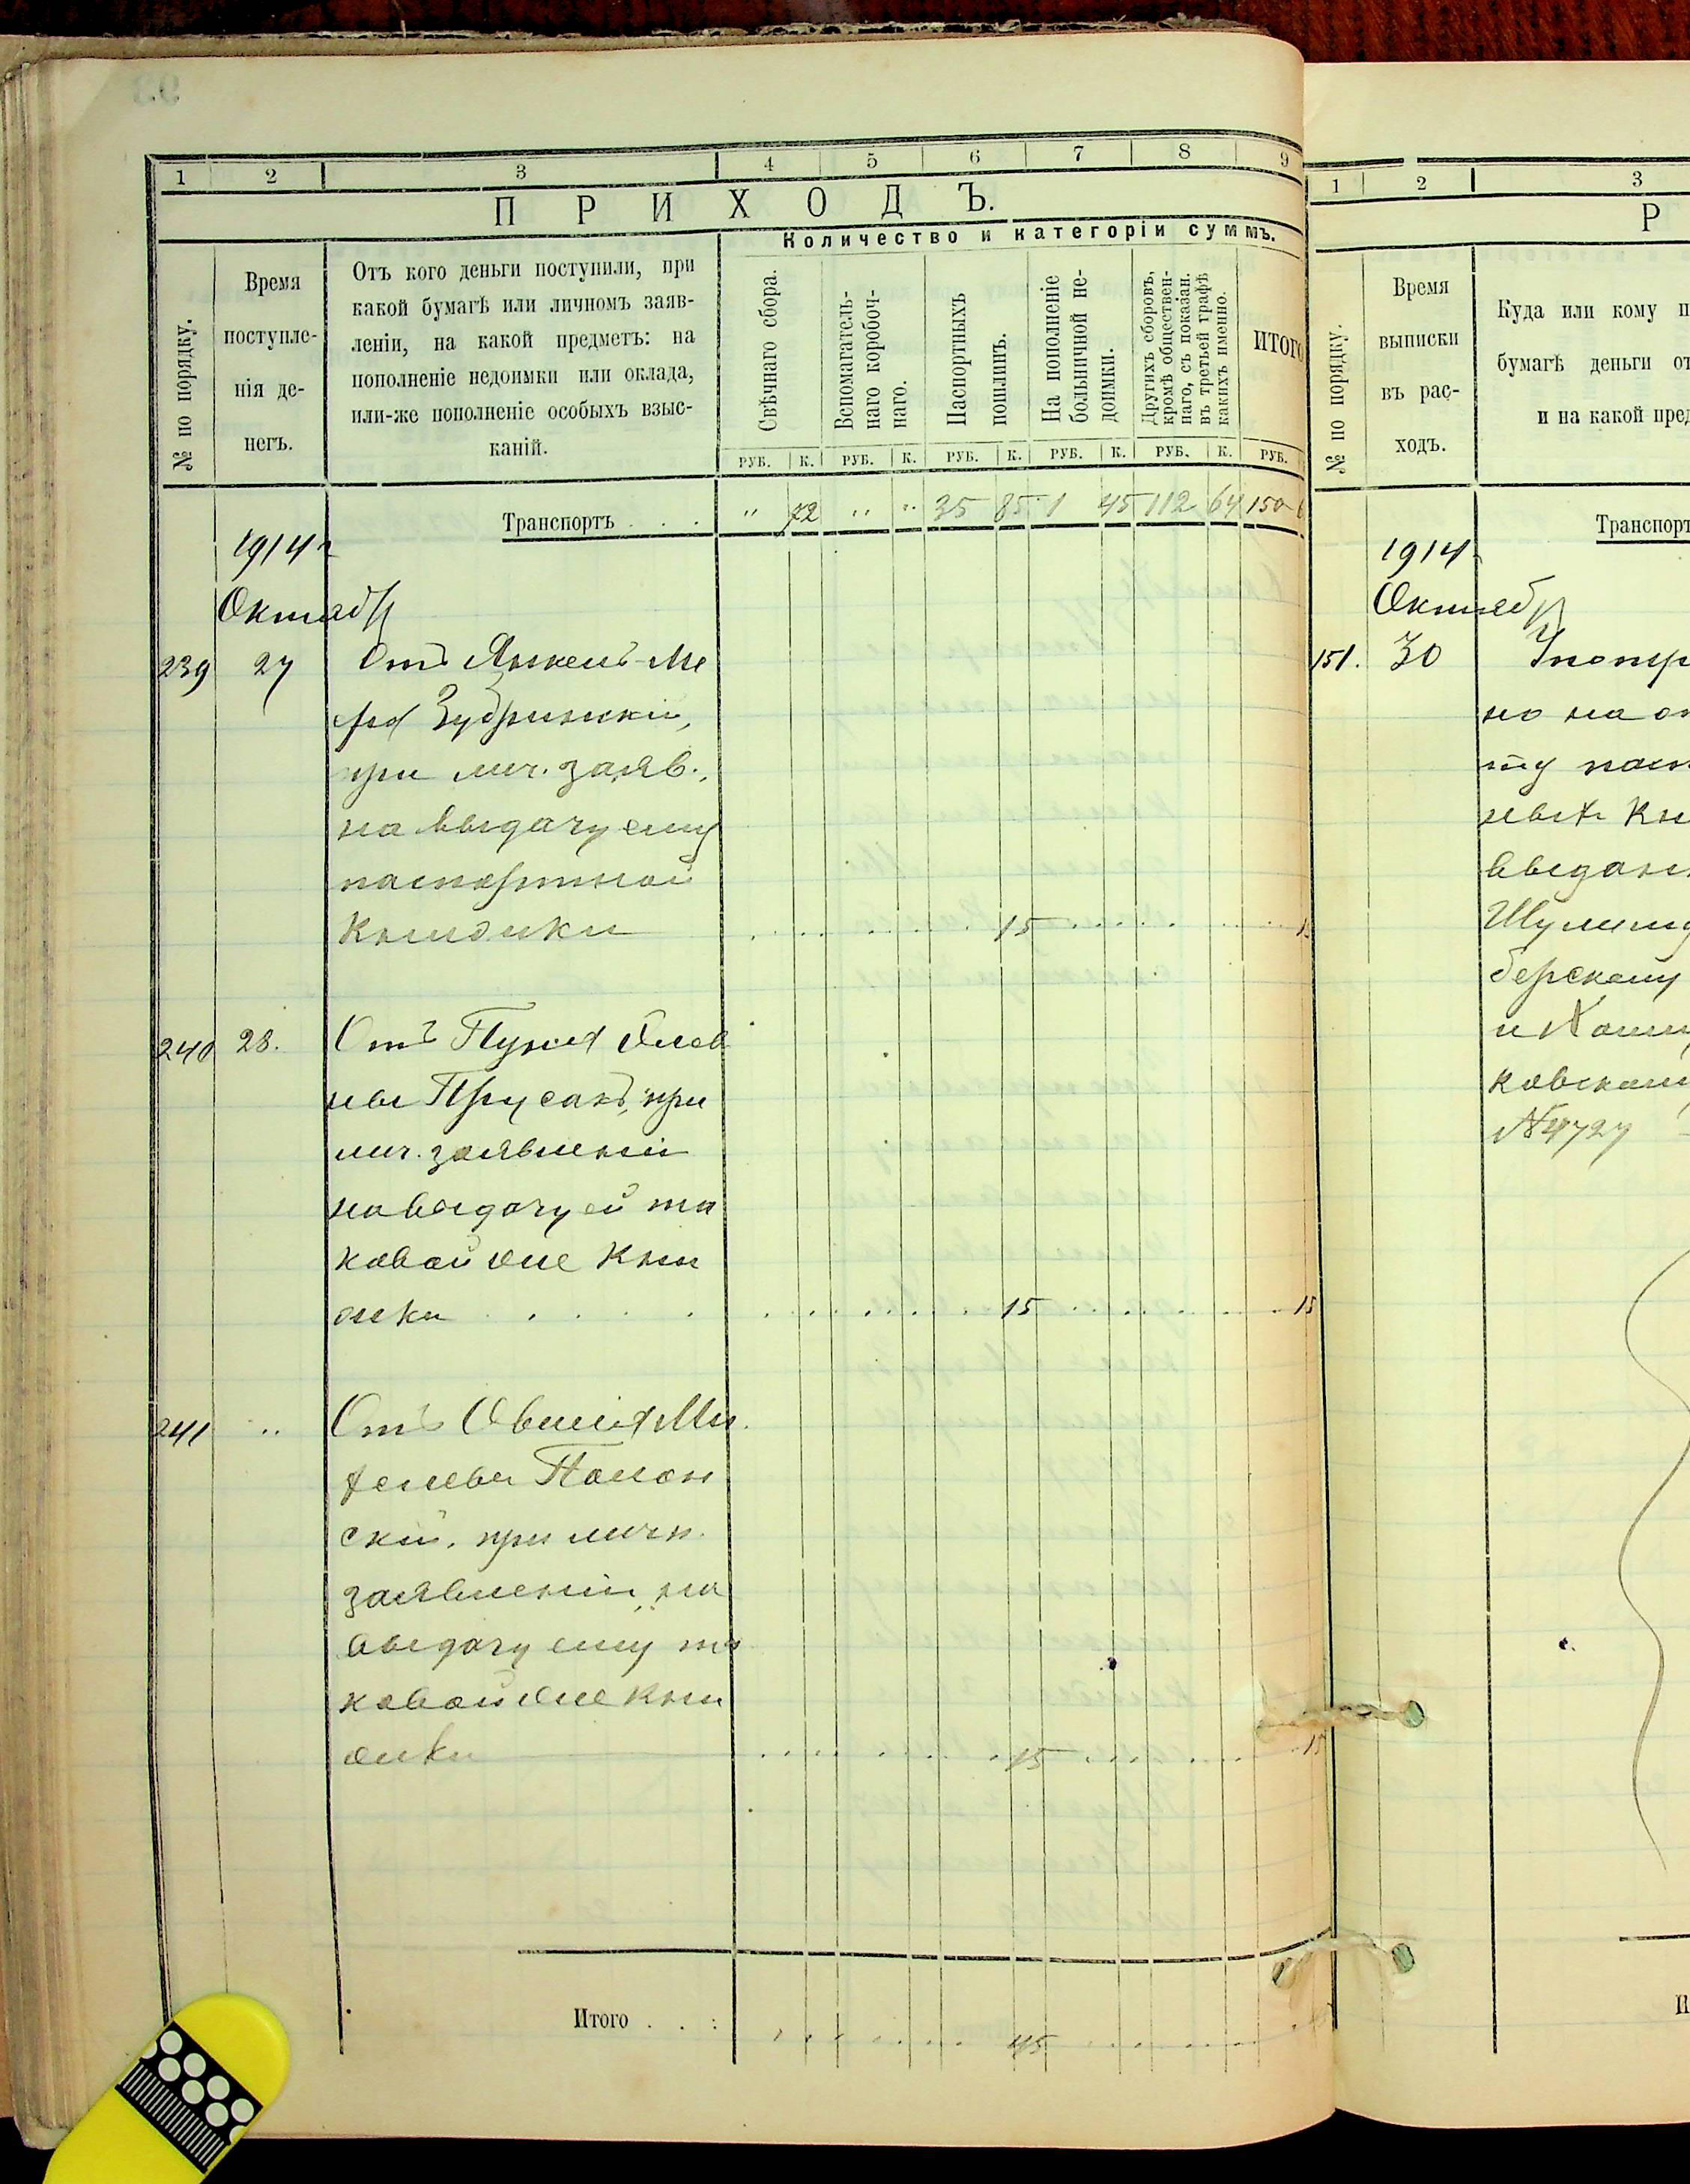 1 2 3 4 5 6 7 8 9
ПРИХОДЪ.
№ по порядку.
Время
поступле-
нія де-
негъ.
Отъ кого деньги поступили, при
какой бумагѣ или личномъ заяв-
леніи, на какой предметъ: на
пополненіе недоимки или оклада,
или-же пополненіе особыхъ взыс-
каній.
Количество и категоріи суммъ.
Свѣчнаго сбора.
Вспомагатель-
наго коробоч-
наго.
Паспортныхъ
пошлинъ.
На пополненіе
больничной не-
доимки.
Другихъ сборовъ,
кромѣ обществен-
наго, съ показан.
въ третьей графѣ
какихъ именно.
ИТОГО
РУБ. К. РУБ. К. РУБ. К. РУБ. К. РУБ. К. РУБ.
Транспортъ . . . " 72 " " 35 85 1 45 112 64 150
1914 г
Октябр
239 27 Отъ Янкель-Ме
Зубринскій,
при лич. заяв.,
на выдачу ему
паспортной
Книжки 15
240 28. Отъ
Прусакъ, при
лич. заявленіи
на выдачу ей та
ковой же Кни
жки . . . . . 15 15
241 " Отъ Овшія Ми
хелева Полон
скій, при личн.
заявленіи, на
выдачу ему та
ковой же Кни
жки 15 15
Итого . . : 45
1 2 3
Р
№ по порядку.
Время
выписки
въ рас-
ходъ.
Куда или кому п
бумагѣ деньги от
и на какой пред
Транспорт
1914
Октябр
151. 30 Употр
но на оп
ту пасп
ныхъ Кн
выдан
берскому
и
ковском
№ 4727
И